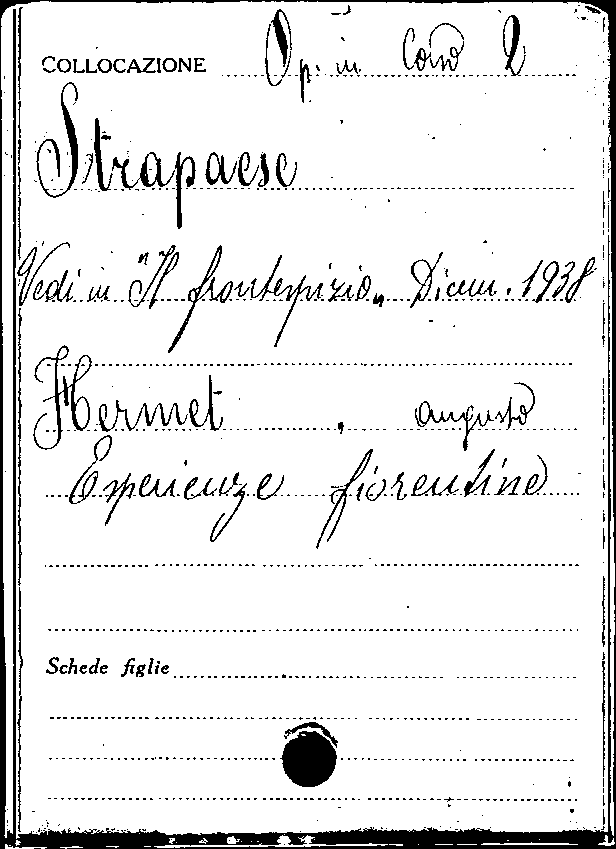 COLLOCAZIONE Op. in Corso 2
Strapaese
Vedi in "Il frontespizio„ Dicem. 1938
Hermet, Augusto
Esperienze fiorentine
Schede figlie